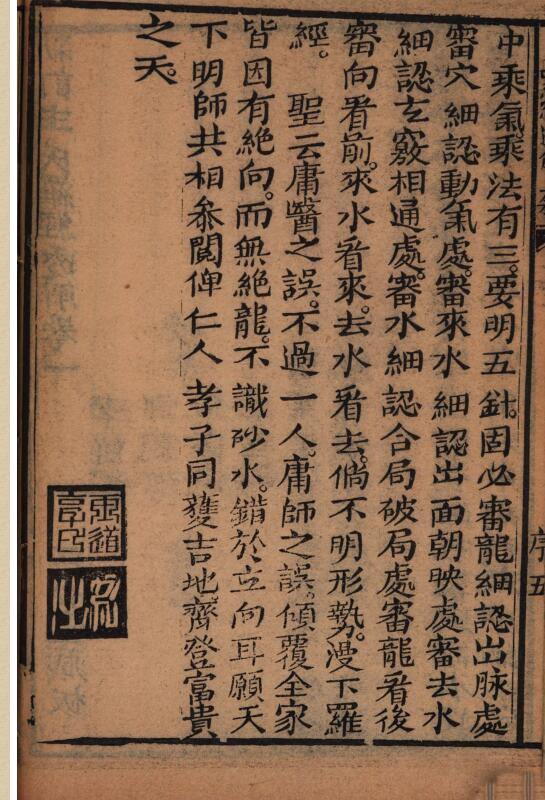 中乘氣乘法有三。要明五針。固必審龍細認出脉處
審穴細認動氣處。審來水細認出面朝映處審去水
細認玄竅相通處。審水細認合局破局處審龍看後
審向看前。來水看來。去水看去。倘不明形勢。漫下羅
經。聖云庸醫之誤。不過一人。庸師之誤。傾覆全家
皆因有絶向。而無絶龍。不識砂水。錯於立向耳願天
下明師共相叅閱俾仁人孝子同獲吉地齊登富貴
之天。
序五